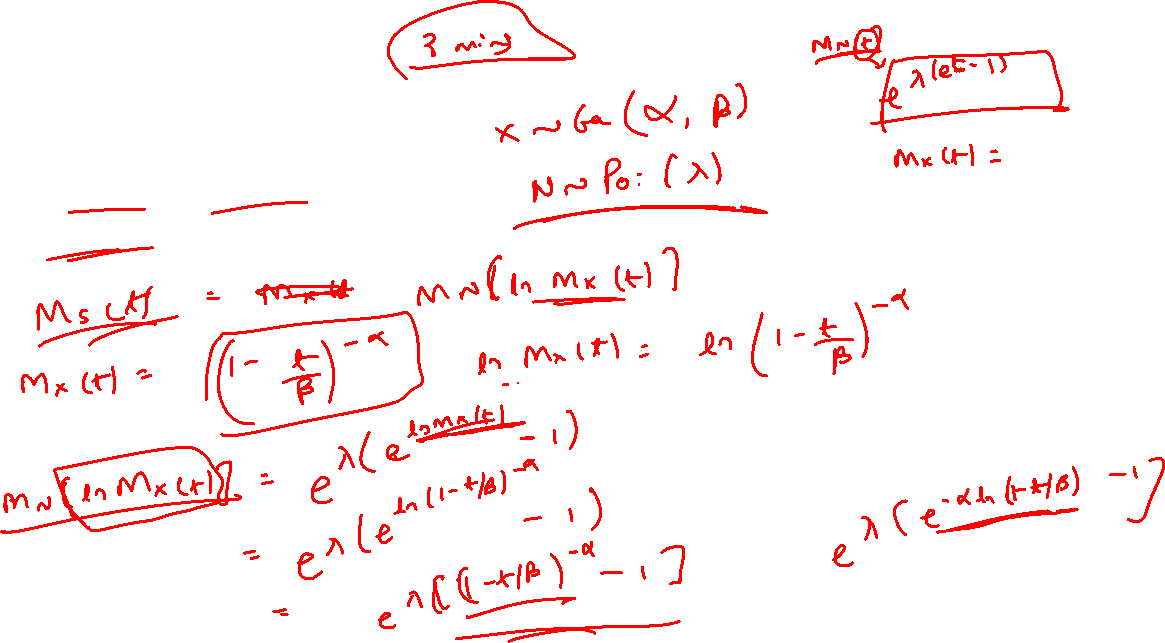 3 min
M_N(t)
e^{λ(e^t - 1)}
X ~ Ga(α, β)
M_X(t) =
N ~ Poi(λ)
M_S(t) = M_N[ln M_X(t)]
M_X(t) = (1 - t/β)^{-α}   ln M_X(t) = ln(1 - t/β)^{-α}
M_N[ln M_X(t)] = e^{λ(e^{ln M_X(t)} - 1)}
= e^{λ(e^{ln(1-t/β)^{-α}} - 1)}
e^{λ[e^{-α ln(1-t/β)} - 1]}
= e^{λ[(1-t/β)^{-α} - 1]}